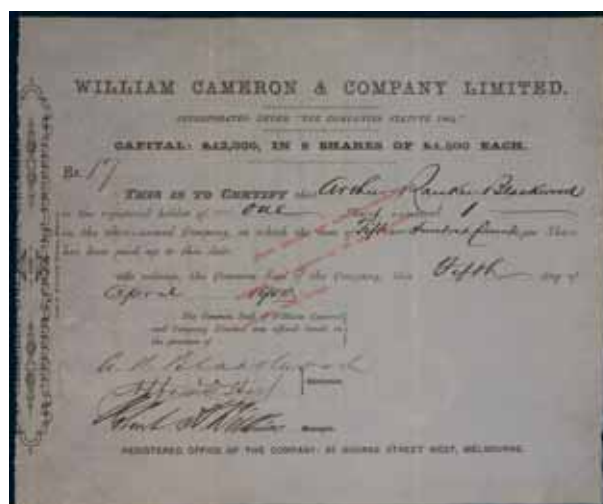 WILLIAM CAMERON & COMPANY LIMITED.
INCORPORATED UNDER "THE COMPANIES STATUTE 1864."
CAPITAL: £12,000, IN 8 SHARES OF £1,500 EACH.
No. 17
THIS IS TO CERTIFY that Arthur Ranken Blackwood
is the registered holder of one Share numbered 1
in the above-named Company, on which the sum of Fifteen Hundred Pounds per Share
has been paid up to this date.
the Common Seal of the Company, this Fifth day of
April
The Common Seal of William Cameron
and Company Limited was affixed hereto in
the presence of
A. R. Blackwood
Directors.
Manager.
REGISTERED OFFICE OF THE COMPANY: STREET WEST, MELBOURNE.